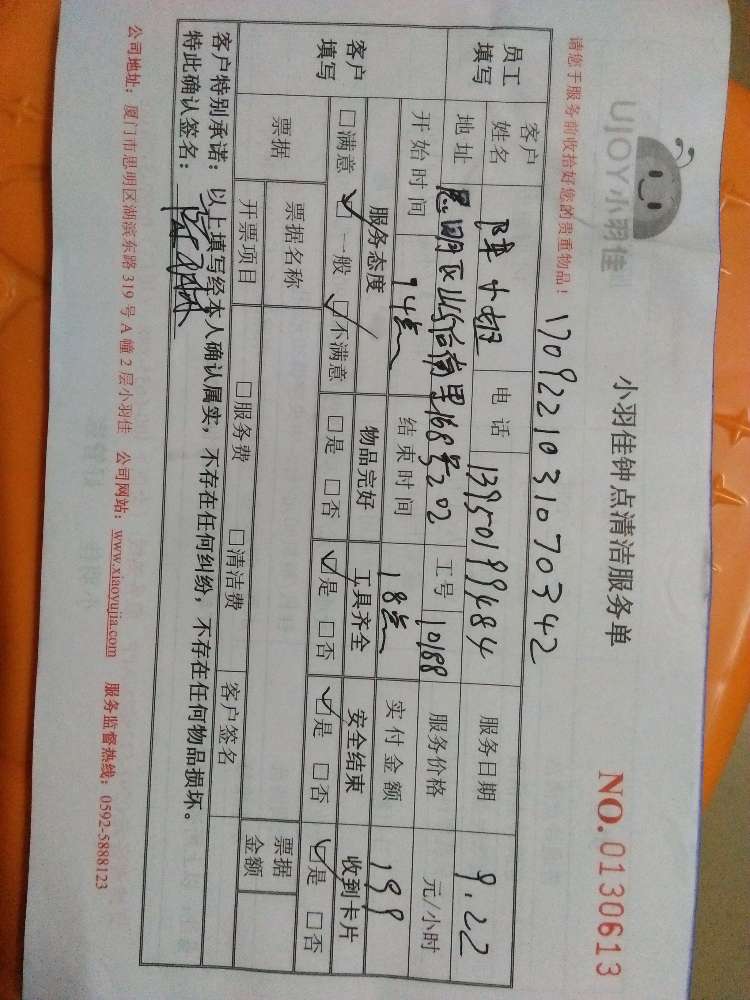 UJOY小羽佳
小羽佳钟点清洁服务单
NO.0130613
请您于服务前收拾好您的贵重物品！
170922103107034​2
员工填写 客户姓名 陈小姐 电话 13950199484 服务日期 9.22
地址 思明区 后南里168号202 工号 10188 服务价格 元/小时
开始时间 14点 结束时间 18点 实付金额 199
客户填写 服务态度 物品完好 工具齐全 安全结束 收到卡片
□满意 ☑一般 ☑不满意 □是 □否 ☑是 □否 ☑是 □否 ☑是 □否
票据 票据名称 票据金额
开票项目 □服务费 □清洁费 客户签名
客户特别承诺：以上填写经本人确认属实，不存在任何纠纷，不存在任何物品损坏。
特此确认签名：
公司地址：厦门市思明区湖滨东路319号A幢2层小羽佳 公司网站：www.xiaoyujia.com 服务监督热线：0592-5888123